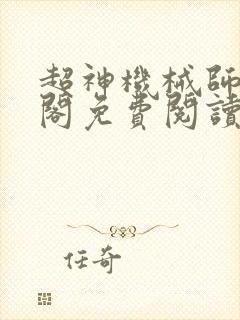 超神機械師
閣免費閱讀
任奇